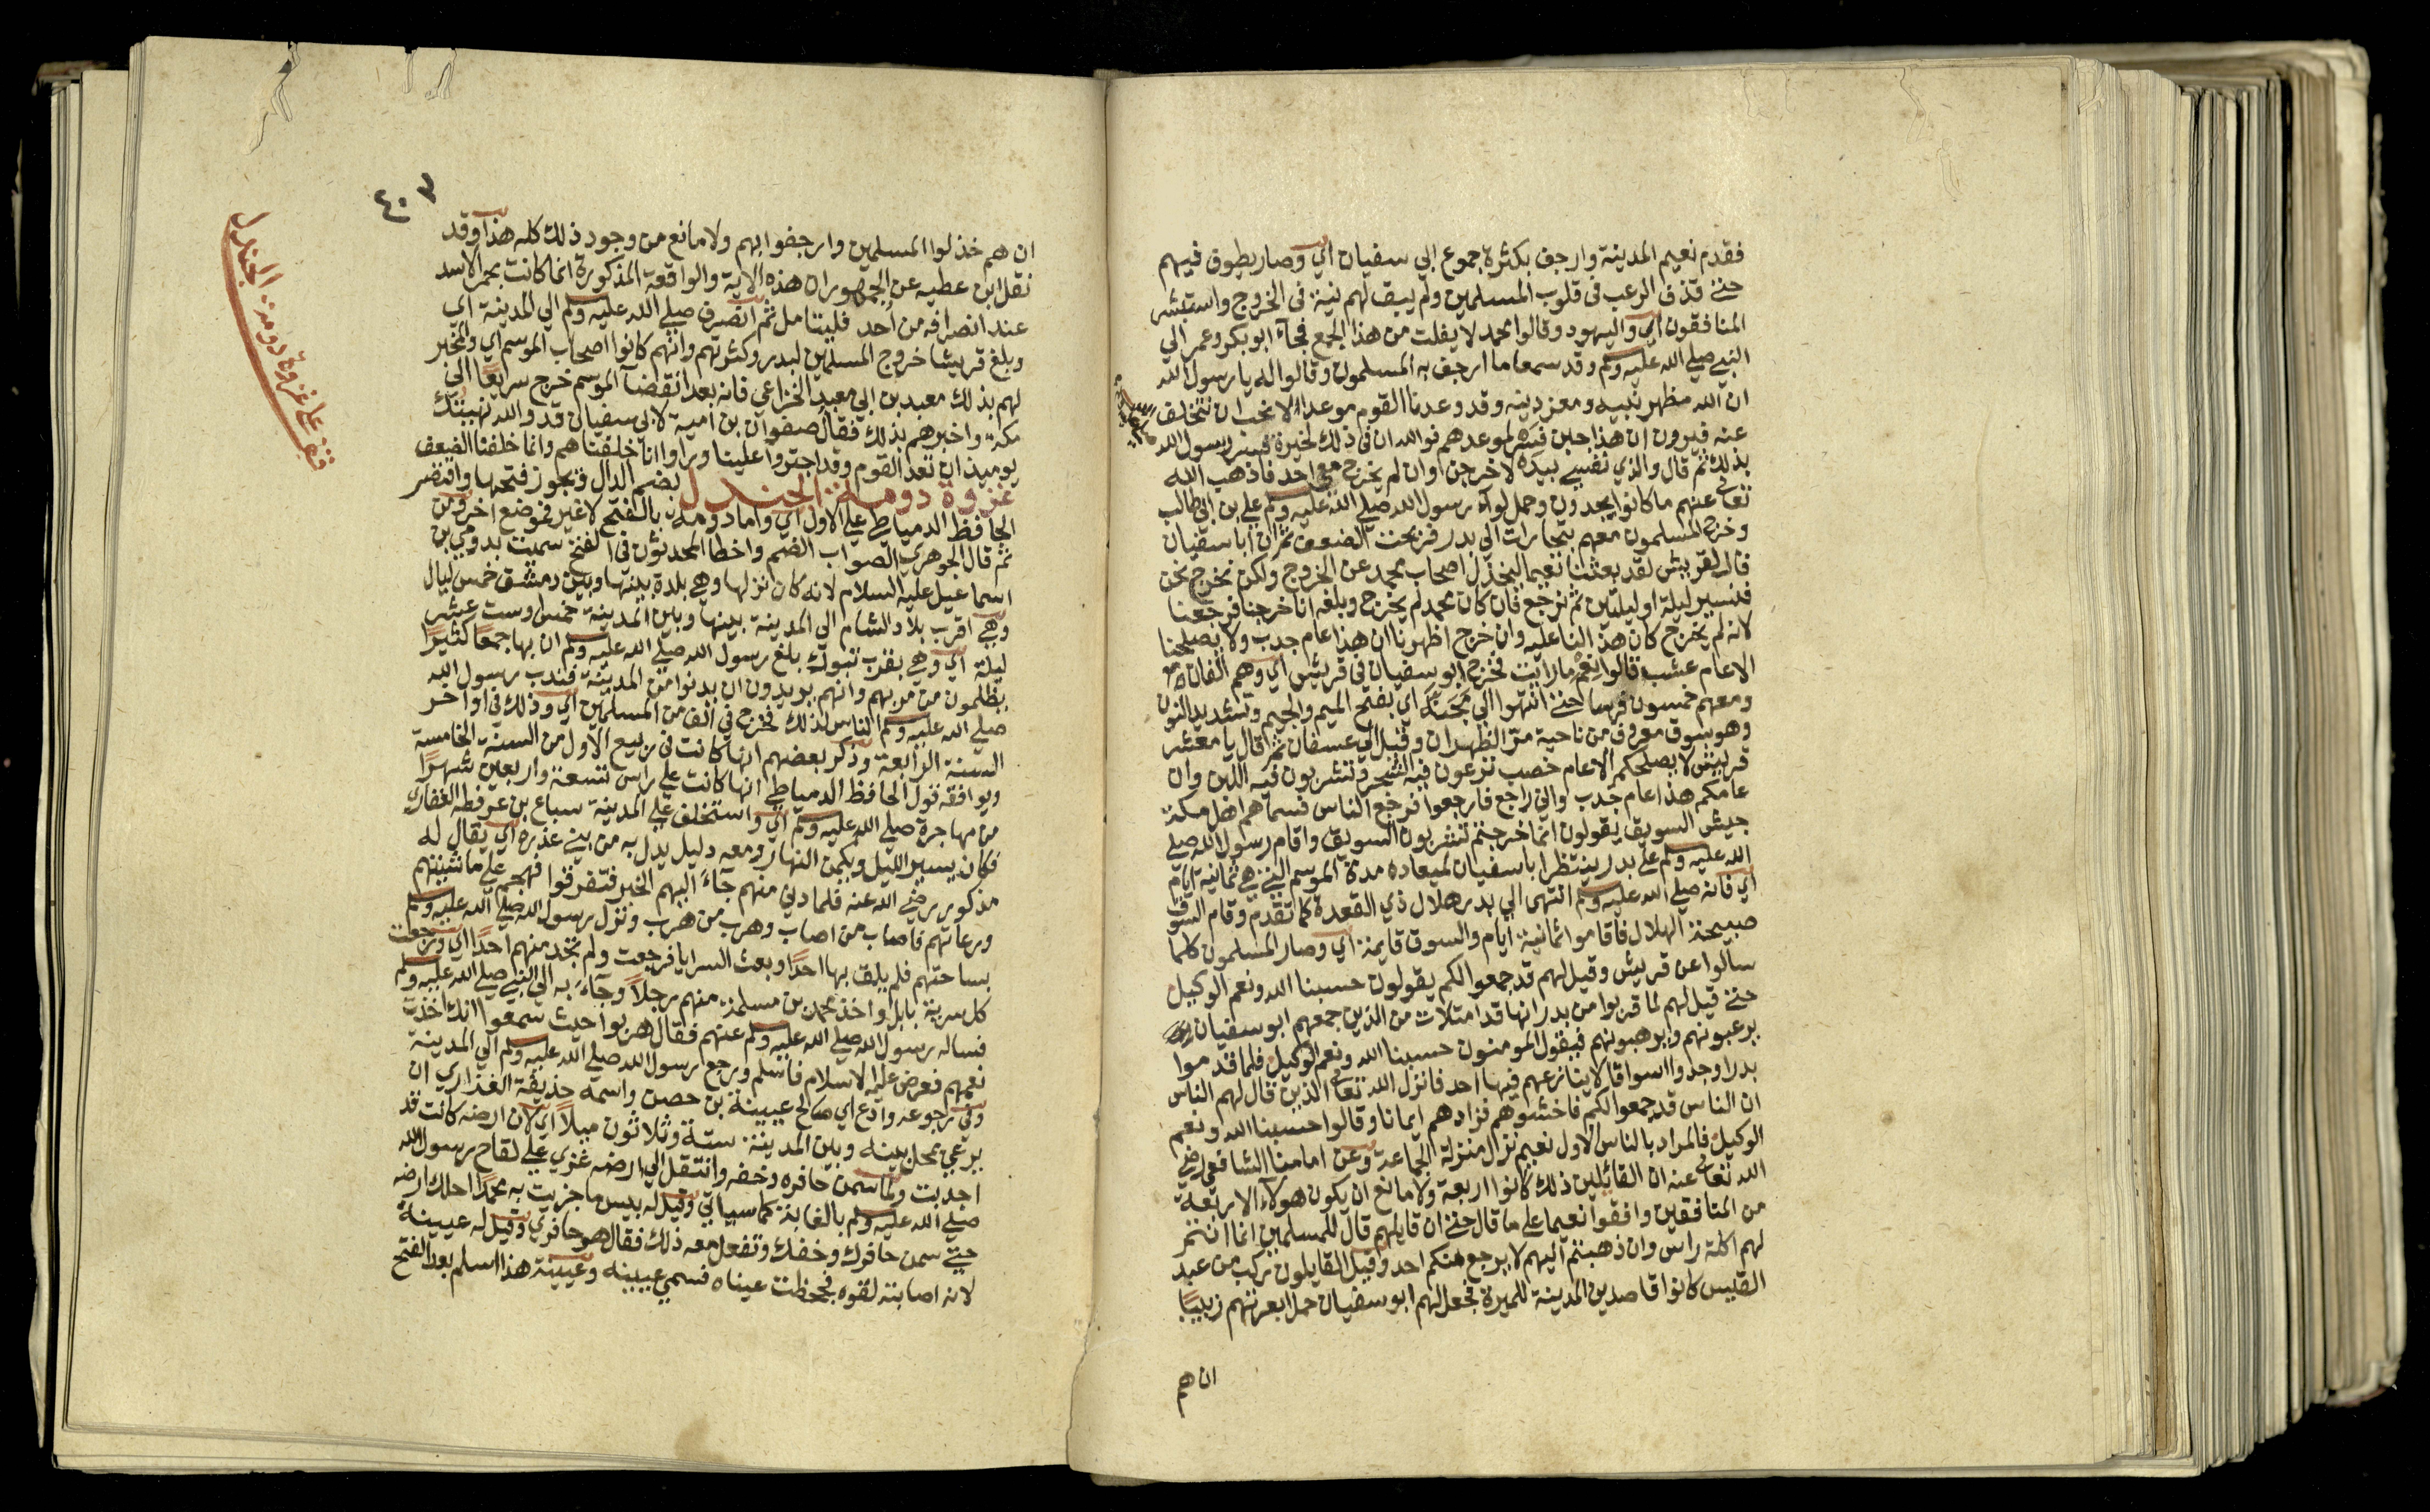 فقدم نعيم المدينة وارجف بكثرة جموع ابي سفيان اي وصار يطوف فيهم
حتى قذف الرعب في قلوب المسلمين ولم يبق لهم نية في الخروج واستبشر
المنافقون اي واليهود وقالوا محمد لا يفلت من هذا الجمع فجآء ابو بكر وعمر الي
النبي صلي الله عليه وسلم وقد سمعا ما ارجف به المسلمون وقالوا له يا رسول الله
ان الله مظهر نبيه ومعز دينه وقد وعدنا القوم موعدا لا نحب ان نتخلف
عنه فيرون ان هذا جبن فسر لموعدهم فوالله ان في ذلك لخيرة فسر رسول الله
بذلك ثم قال والذي نفسي بيده لاخرجن اوان لم يخرج معي احد فاذهب الله
تعالى عنهم ما كانوا يجدون وحمل لواء رسول الله صلي الله عليه وسلم علي بن ابي طالب
وخرج المسلمون معهم بتجارات الي بدر فربحت الضعف ثم ان ابا سفيان
قال لقريش لقد بعثنا نعيما ليخذل اصحاب محمد عن الخروج ولكن نخرج نحن
فنسير ليلة او ليلتين ثم نرجع فان كان محمد لم يخرج وبلغه انا خرجنا فرجعنا
لانه لم يخرج كان هذا لنا عليه وان خرج اظهرنا ان هذا عام جدب ولا يصلحنا
الا عام عشب قالوا نعم ما رايت فخرج ابو سفيان في قريش اي وهم الفان
ومعهم خمسون فرسا حتى انتهوا الي مجنة اي بفتح الميم والجيم وتشديد النون
وهو سوق معروف من ناحية مر الظهران وقيل الي عسفان ثم قال يا معشر
قريش لا يصلحكم الا عام خصب ترعون فيه الشجر وتشربون فيه اللبن وان
عامكم هذا عام جدب واني راجع فارجعوا فرجع الناس فسماهم اهل مكة
جيش السويق يقولون انما خرجتم تشربون السويق واقام رسول الله صلي
الله عليه وسلم علي بدر ينتظر ابا سفيان لميعاده مدة الموسم التي هي ثمانية ايام
اي فانه صلي الله عليه وسلم انتهى الي بدر هلال ذي القعدة كما تقدم وقام السوق
صبيحة الهلال فاقاموا ثمانية ايام والسوق قايمة اي وصار المسلمون كلما
سالوا عن قريش وقيل لهم قد جمعوا لكم يقولون حسبنا الله ونعم الوكيل
حتى قيل لهم لما قربوا من بدر انها قد امتلات من الذين جمعهم ابو سفيان
يرعبونهم ويرهبونهم فيقول المومنون حسبنا الله ونعم الوكيل فلما قدموا
بدرا وجدوا اسواقا لا ينازعهم فيها احد فانزل الله تعالى الذين قال لهم الناس
ان الناس قد جمعوا لكم فاخشوهم فزادهم ايمانا وقالوا حسبنا الله ونعم
الوكيل فالمراد بالناس الاول نعيم نزل منزلة الجماعة وعن امامنا الشافعي رضي
الله تعالى عنه ان القائلين ذلك كانوا اربعة ولا مانع ان يكون هولاء الاربعة
من المنافقين وافقوا نعيما علي ما قال حتى ان قايلهم قال للمسلمين انما انتم
لهم اكلة راس وان ذهبتم اليهم لا يرجع منكم احد وقيل القايلون ركب من عبد
القيس كانوا قاصدين المدينة للميرة فجعل لهم ابو سفيان حمل ابعرتهم زبيبا
ان هم
٤٠٧
ان هم خذلوا المسلمين وارجفوا بهم ولا مانع من وجود ذلك كله هذا وقد
نقل ابن عطيه عن الجمهور ان هذه الاية والواقعة المذكورة انما كانت بحمرا الاسد
عند انصرافه من احد فليتامل ثم انصرف صلي الله عليه وسلم الي المدينة اي
وبلغ قريشا خروج المسلمين لبدر وكثرتهم وانهم كانوا اصحاب الموسم اي والمخبر
لهم بذلك معبد بن ابي معبد الخزاعي فانه بعد انقضآ الموسم خرج سريعا الي
مكة واخبرهم بذلك فقال صفوان بن امية لابي سفيان قد والله نهيتك
يوميذ ان تعد القوم وقد اجتروا علينا وراوا انا خلفناهم وانما خلفنا الضعف
غزوة دومة الجندل بضم الدال ويجوز فتحها واقتصر
الحافظ الدمياطي علي الاول اي واما دومة بالفتح لا غير فموضع اخر ومن
ثم قال الجوهري الصواب الضم واخطا المحدثون في الفتح سميت بدومي بن
اسماعيل عليه السلام لانه كان نزلها وهي بلدة بينها وبين دمشق خمس ليال
وهي اقرب بلاد الشام الي المدينة بينها وبين المدينة خمس او ست عشر
ليلة اي وهي بقرب تبوك بلغ رسول الله صلي الله عليه وسلم ان بها جمعا كثيرا
يظلمون من مر بهم وانهم يريدون ان يدنوا من المدينة فندب رسول الله
صلي الله عليه وسلم الناس لذلك فخرج في الف من المسلمين اي وذلك في اواخر
السنة الرابعة وذكر بعضهم انها كانت في ربيع الاول من السنة الخامسة
ويوافقه قول الحافظ الدمياطي انها كانت علي راس تسعة واربعين شهرا
من مهاجره صلي الله عليه وسلم اي واستخلف علي المدينة سباع بن عرفطه الغفاري
فكان يسير الليل ويكمن النهار ومعه دليل يدل به من بني عذره اي يقال له
مذكور رضي الله عنه فلما دني منهم جآء اليهم الخبر فتفرقوا فهجم علي ماشيتهم
ورعاتهم فاصاب من اصاب وهرب من هرب ونزل رسول الله صلي الله عليه وسلم
بساحتهم فلم يلق بها احدا وبعث السرايا فرجعت ولم تجد منهم احدا اي ورجعت
كل سرية بابل واخذ محمد بن مسلمة منهم رجلا وجآء به الي النبي صلي الله عليه وسلم
فساله رسول الله صلي الله عليه وسلم عنهم فقال هربوا حيث سمعوا انك اخذت
نعمهم فعرض عليه الاسلام فاسلم ورجع رسول الله صلي الله عليه وسلم الي المدينة
وفي رجوعه وادع اي صالح عيينة بن حصن واسمه حذيفة الفزاري ان
يرعي بمحل بينه وبين المدينة ستة وثلاثون ميلا اي لان ارضه كانت قد
اجدبت ولما سمن حافره وخفه وانتقل الي ارضه غزي علي لقاح رسول الله
صلي الله عليه وسلم بالغابة كما سياتي وقيل له بيس ما جزيت به محمدا احلك ارضه
حتي سمن حافرك وخفك وتفعل معه ذلك فقال هو حافري وقيل له عيينة
لانه اصابته لقوه فجحظت عيناه فسمي عيينه وعيينة هذا اسلم بعد الفتح
قف علي غزوة دومة الجندل